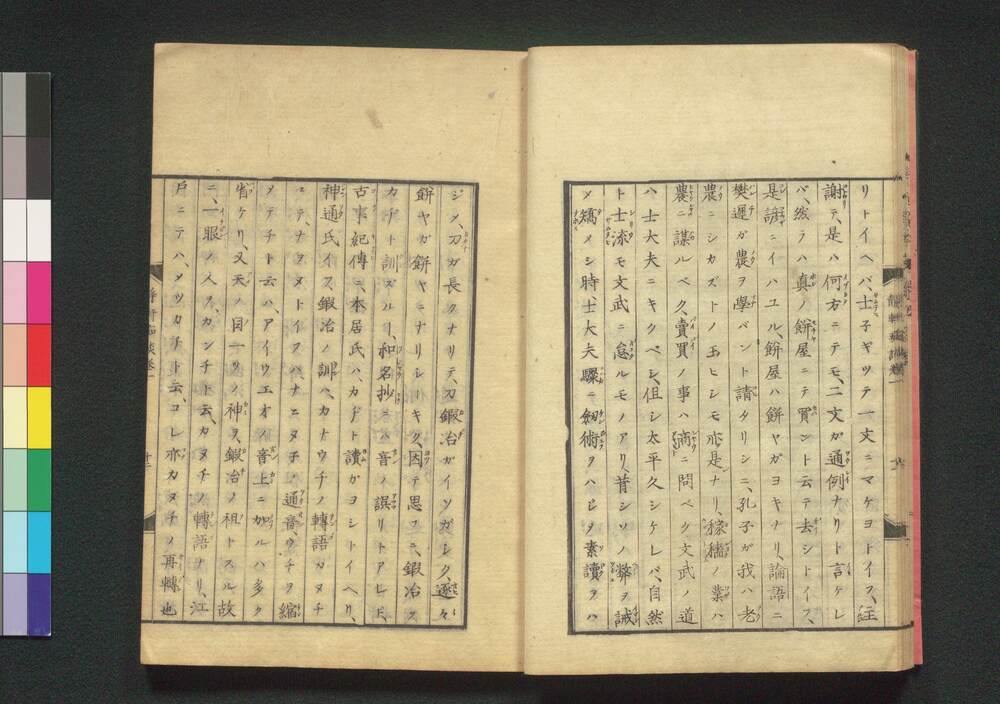 リトイヘバ、士子ギツテ一文ニマケヨトイフ、注
謝テ、是ハ何方ニテモ、二文ガ通例ナリト言ケレ
バ、然ラハ真ノ餅屋ニテ買ント云テ去シトイフ、
是諺ニイハユル、餅屋ハ餅ヤガヨキナリ、論語ニ
樊遲ガ農ヲ學バント請タリシニ、孔子ガ我ハ老
農ニシカズトノ玉ヒシモ亦是ナリ、稼穡ノ業ハ
農ニ謀ルベク、賣買ノ事ハ商ニ問ベク文武ノ道
ハ士大夫ニキクベシ、但シ太平久シケレバ、自然
ト士流モ文武ニ怠ルモノアリ、昔シソノ弊ヲ誡
メ矯メシ時、士大夫驟ニ劒術ヲハシタ素讀ヲハ
ジメ、刀ガ長クナリテ、刀鍛冶ガイソガシク、逐々
餅ヤガ餅ヤニナリシトキク、因テ思フニ、鍛冶ヲ
カヂト訓ズルヿ、和名抄ニハ音ノ誤リトアレ𪜈、
古事紀傳ニ、本居氏ハ、カヂト讀ガヨシトイヘリ、
神通氏イフ、鍛冶ノ訓ハ、カナウチノ轉語カヌチ
ニテナヲヌトイフハ、ナニヌ子ノ通音、ウチヲ縮
メテチト云ハ、アイウエオノ音上ニ加ルハ多ク
省ケリ、又天ノ目一ツノ神ヲ、鍛冶ノ祖トスル故
ニ、一眼ノ人ヲ、カンチト云、カヌチノ轉語ナリ、江
戸ニテハ、メツカチト云、コレ亦カヌチノ再轉也